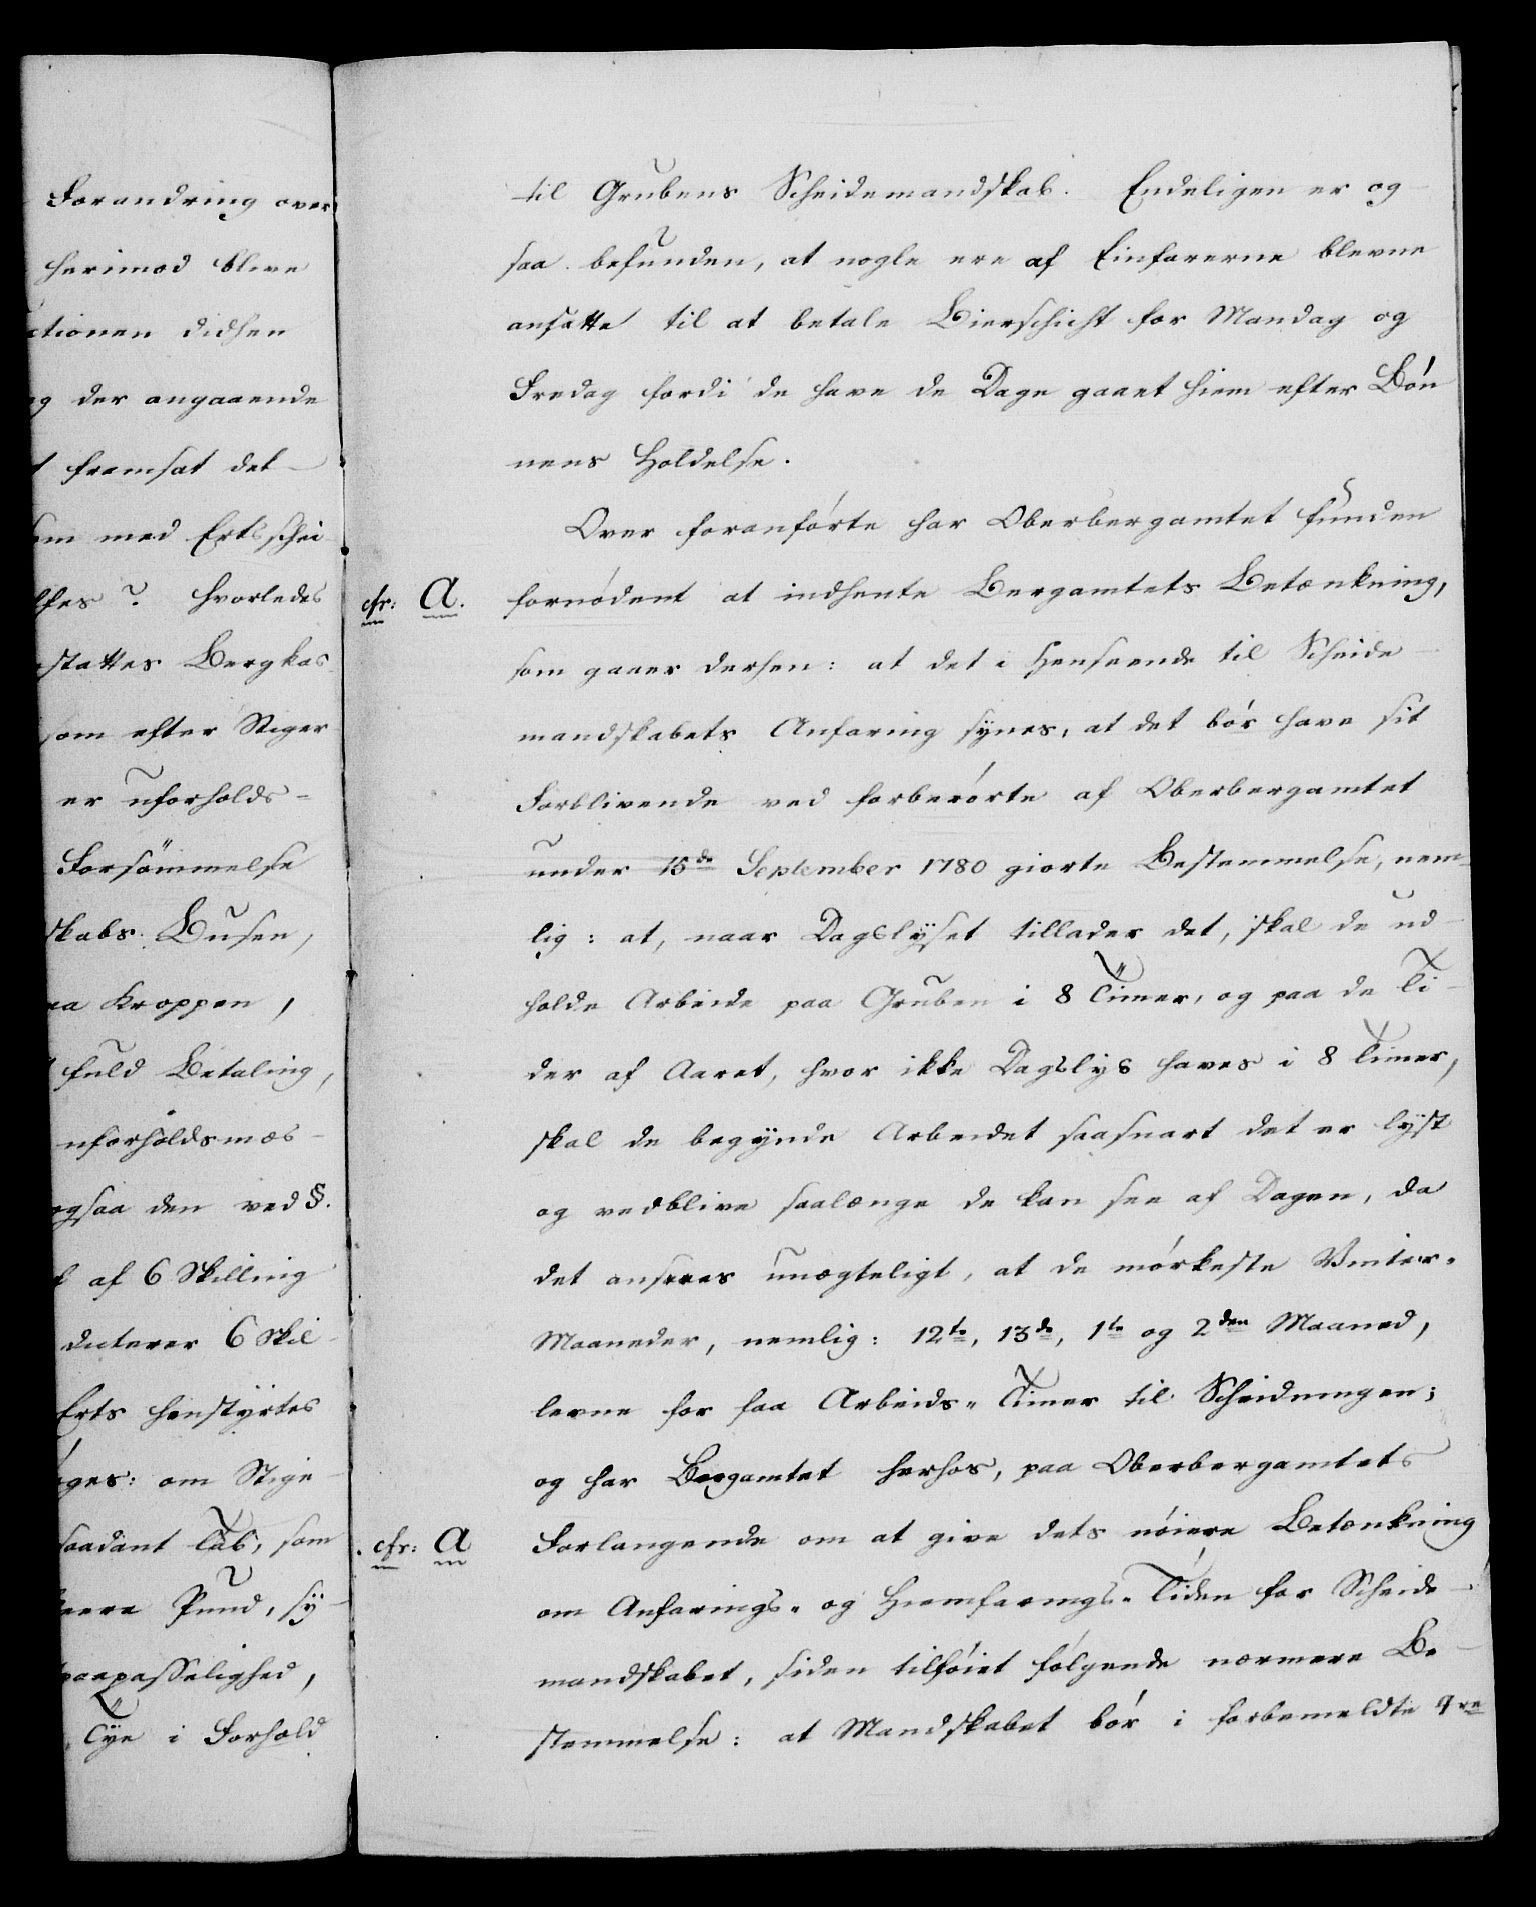 Forandring over
herimod blive
ctionen didhen
og der angaaende
t fremsat det
om med Ertsschei
lses? hvorledes
stattes Bergkas
som efter Stiger
er uforholds=
Forsömmelse
skabs Busen,
aa Kroppen,
fuld Betaling,
uforholdsmæs-
ogsaa den ved §.
t af 6 Skilling
dicterer 6 Skil
Erts henstyrtes
öges: om Stige
saadant Tab, som
eere Pund, sy-
paapasselighed,
Tye i Forhold
til Grubens Scheidemandskab. Endeligen er og-
saa befunden, at nogle ere af Einfarerne blevne
ansatte til at betale Bierschicht for Mandag og
Fredag fordi de have de Dage gaaet hiem efter Bön
nens Holdelse.
Over foranförte har Oberbergamtet funden
cfr: A. fornödent at indhente Bergamtets Betænkning,
som gaaer derhen: at det i Henseende til Scheide-
mandskabets Anfaring synes, at det bör have sit
Forblivende ved forberörte af Oberbergamtet
under 15de September 1780 giorte Bestemmelse, nem-
lig: at, naar Dagslyset tillader det, skal de ud-
holde Arbeide paa Gruben i 8 Timer, og paa de Ti-
der af Aaret, hvor ikke Dagslys haves i 8 Timer,
skal de begynde Arbeidet saasnart det er lyst
og vedblive saalænge de kan see af Dagen, da
det ansees unægteligt, at de mörkeste Vinter-
Maaneder, nemlig: 12te, 13de, 1te og 2den Maaned,
levne for faa Arbeids-Timer til Scheidningen;
og har Bergamtet herhos, paa Oberbergamtets
cfr: A Forlangende om at give dets nöiere Betænkning
om Anfarings- og Hiemfarings-Tiden for Scheide-
mandskabet, siden tilföiet fölgende nærmere Be-
stemmelse: at Mandskabet bör i forbemeldte 4re